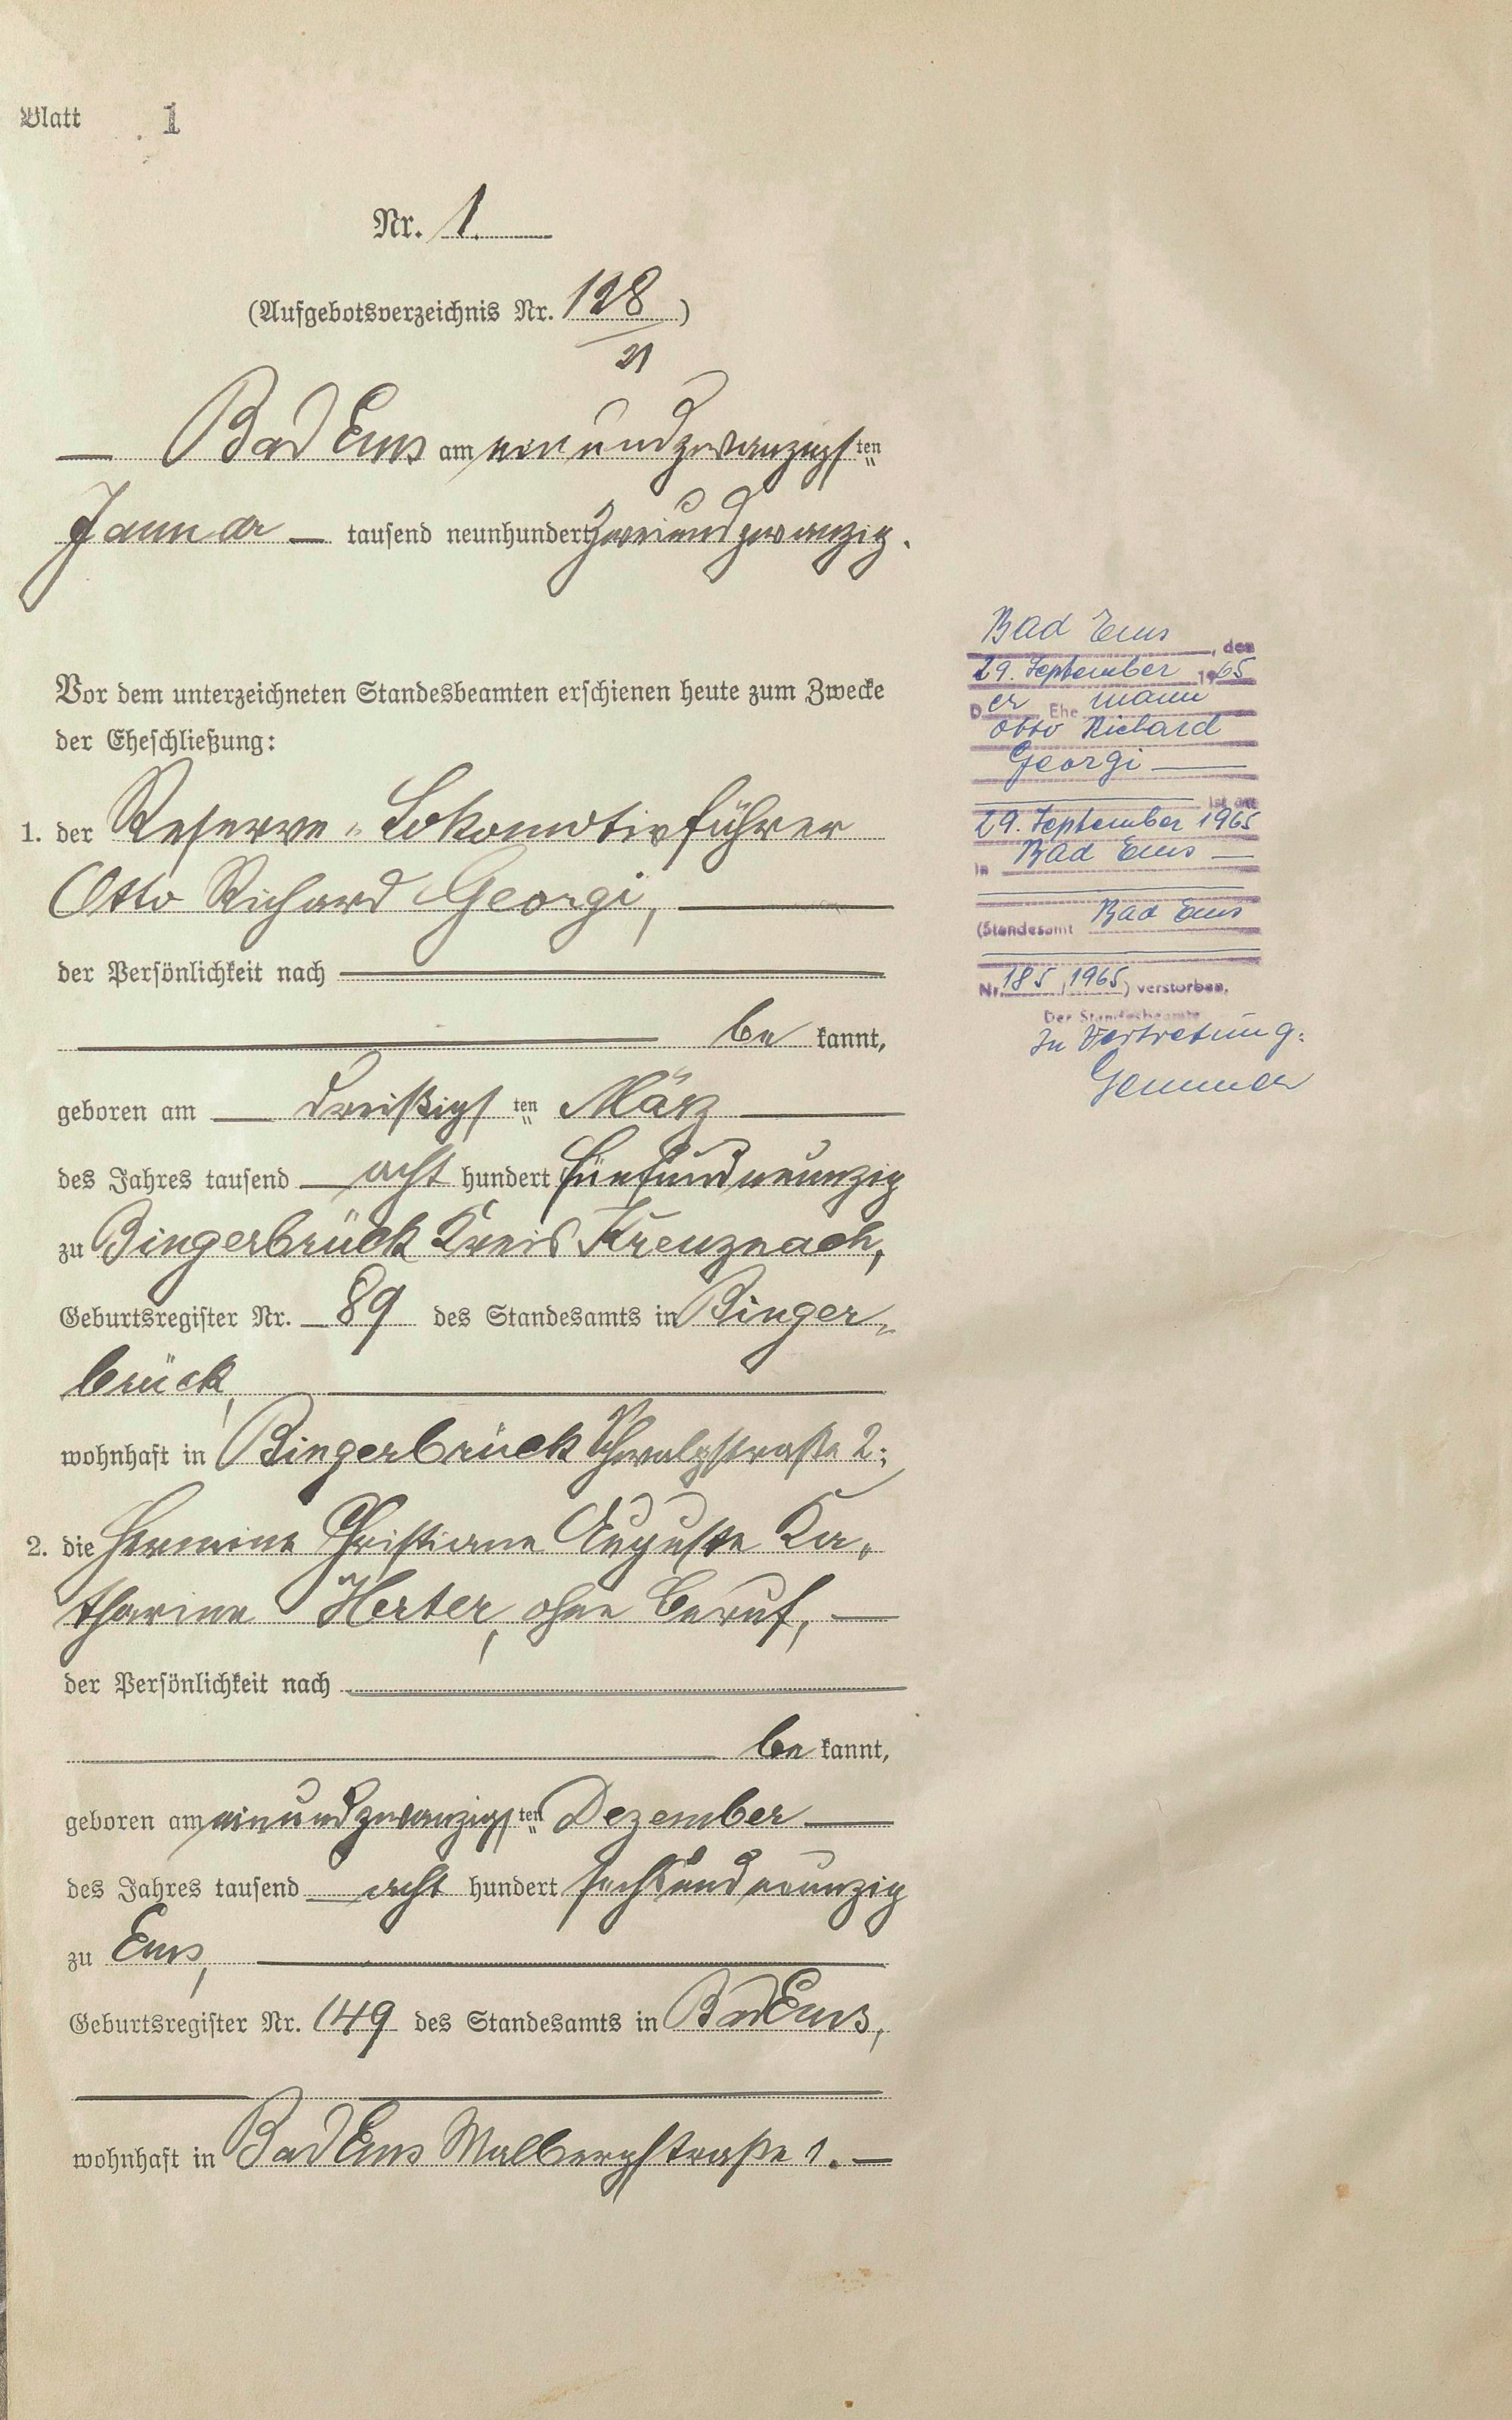 Blatt 1
Nr. 1.
(Aufgebotsverzeichnis Nr. 128)
21
Bad Ems am einundzwanzigsten
Januar tausend neunhundert zweiundzwanzig.
Vor dem unterzeichneten Standesbeamten erschienen heute zum Zwecke
der Eheschließung:
1. der Reserve-Lokomotivführer
Otto Richard Georgi,
der Persönlichkeit nach
be kannt,
geboren am dreißigsten März
des Jahres tausend acht hundert fünfundneunzig
zu Bingerbrück Kreis Kreuznach,
Geburtsregister Nr. 89 des Standesamts in Binger-
brück,
wohnhaft in Bingerbrück straße 2;
2. die Hermine Christiane Auguste Ka-
tharine Herter, ohne Beruf,
der Persönlichkeit nach
be kannt,
geboren am einundzwanzigsten Dezember
des Jahres tausend acht hundert sechsundneunzig
zu Ems,
Geburtsregister Nr. 149 des Standesamts in Bad Ems,
wohnhaft in Bad Ems Malbergstraße 1.
Bad Ems, den
29. September 1965
Der Ehemann
Otto Richard
Georgi
ist am
29. September 1965
in Bad Ems
(Standesamt Bad Ems
Nr. 185/1965) verstorben.
Der Standesbeamte
In Vertretung: